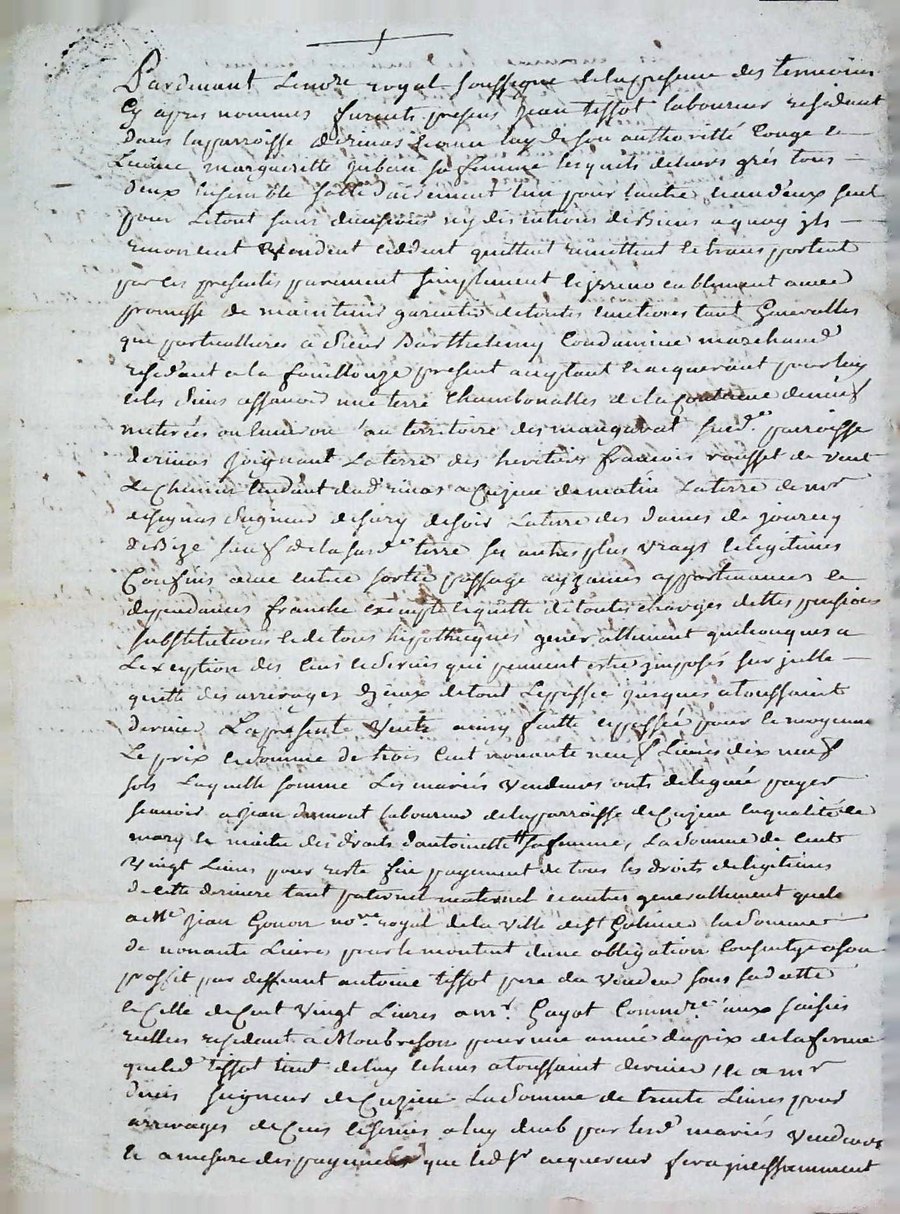 Pardevant Le nore royal soussigne et la presence des temoins
Cy apres nommes furents presens jean tissot laboureur residant
dans la parroisse derivas Et son authoritté Conge et
Licence margueritte sa femme lesquels de leurs grés tous
deux Ensemble sollidairement lun pour lautre Lun deux seul
pour Le tout sans division ny discutions de Biens a quoy ils
renoncent vendent ceddent quittent remettent et transportent
par ces presentes purement simplement et jrrevocablement avec
promesse de maintenir garentir de toutes Evictions tant Generalles
que particullieres a Sieur Barthelemy Condamine marchand
residant a la fouillouze present aceptant et acquerant pour luy
et les Siens assavoir une terre Chambonalles de la Contenue de neuf
meterées ou Environ au territoire des susde parroisse
derivas joignant La terre des heretiers francois rousset de vent
Le Chemin tendant dud rivas a Cuzieu de matin La terre de mr
Seigneur de sury de soir La terre des dames de jourcey
de Bize sauf de la susde terre ses autres plus vrays et legitimes
Confins avec entrée sortie passage ayzances appartenances et
dependances franche exempte et quitte de toutes charges dettes pensions
substitutions et de tous hypothecques generallement quelconques a
Lexception des Cens et servis qui peuvent estre jmposés sur jcelle
quitte des arrerages djceux de tout Le passé jusques a toussaint
dernier La presente Vente ainsy faitte et passée pour et moyennant
Le prix et somme de trois Cent nonante neuf Livres dix neuf
sols Laquelle somme Les mariés vendeurs onts delegué payer
scavoir a jean dumont laboureur de la parroisse de Cuzieu en qualité de
mary et maitre des droits dantoinette tt sa femme, La somme de Cent
Vingt Livres pour reste fin payement de tous les droits de legitimes
de cette derniere tant paternel maternel et autres generallement quels
a Me jean Gonon nore royal de la ville de st Galmier la Somme
de nonante Livres pour le montant dune obligation Consentye a son
proffit par deffunt antoine tissot pere du vendeur sous sa datte
et Celle de Cent Vingt Livres a mr. Gayot Commre aux saisies
reelles residant a Monbrison pour une année du prix de la ferme
que led tissot tient de luy Echeue a toussaint dernier, Et a mr
Seigneur de Cuzieu La Somme de trente Livres pour
arrerages de Cens et servis a luy deub par lesd mariés Vendeurs
Et a mesure des payemens que led sr acquereur fera